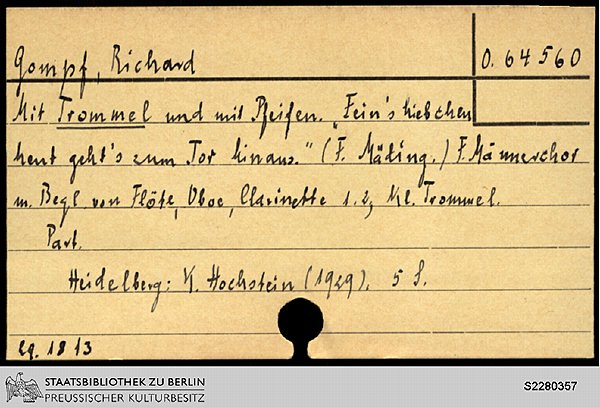 Gompf, Richard
O. 64560
Mit Trommel und mit Pfeifen. „Fein's Liebchen
heut geht's zum Tor hinaus." (F. Mäding.) F. Männerchor
m. Begl. von Flöte, Oboe, Clarinette 1.2, Kl. Trommel.
Part.
Heidelberg: K. Hochstein (1929). 5 S.
18 13
STAATSBIBLIOTHEK ZU BERLIN
PREUSSISCHER KULTURBESITZ
S2280357